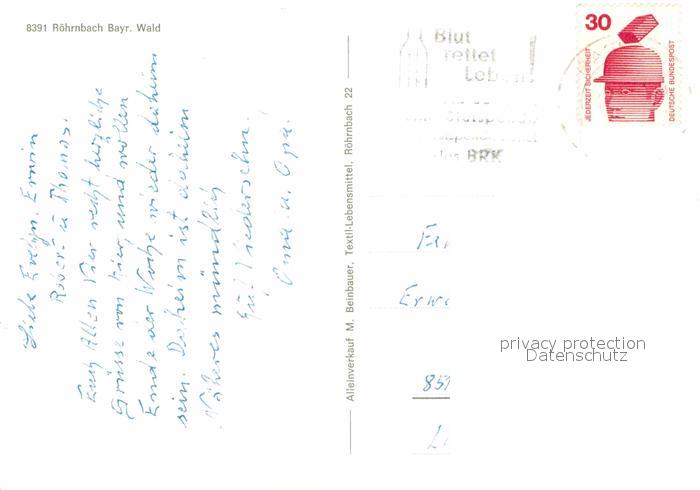 8391 Röhrnbach Bayr. Wald
Liebe Evelyn, Erwin
Robert u Thomas.
Euch Allen Vier recht herzliche
Grüsse von hier und wollen
Ende der Woche wieder daheim
sein. Daheim ist daheim
Näheres mündlich
Auf Wiedersehn.
Oma u. Opa.
Alleinverkauf M. Beinbauer, Textil-Lebensmittel, Röhrnbach 22
Blut
rettet
Leben!
das BRK
30
JEDERZEIT SICHERHEIT
DEUTSCHE BUNDESPOST
Erw
privacy protection
Datenschutz